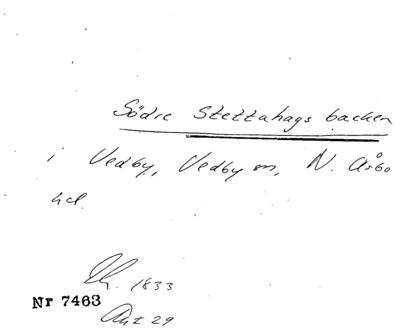 Södre Stettahags backen
i Vedby, Vedby sn, N. Åsbo
hd.
Ch. 1833
Nr 7463
Akt 29